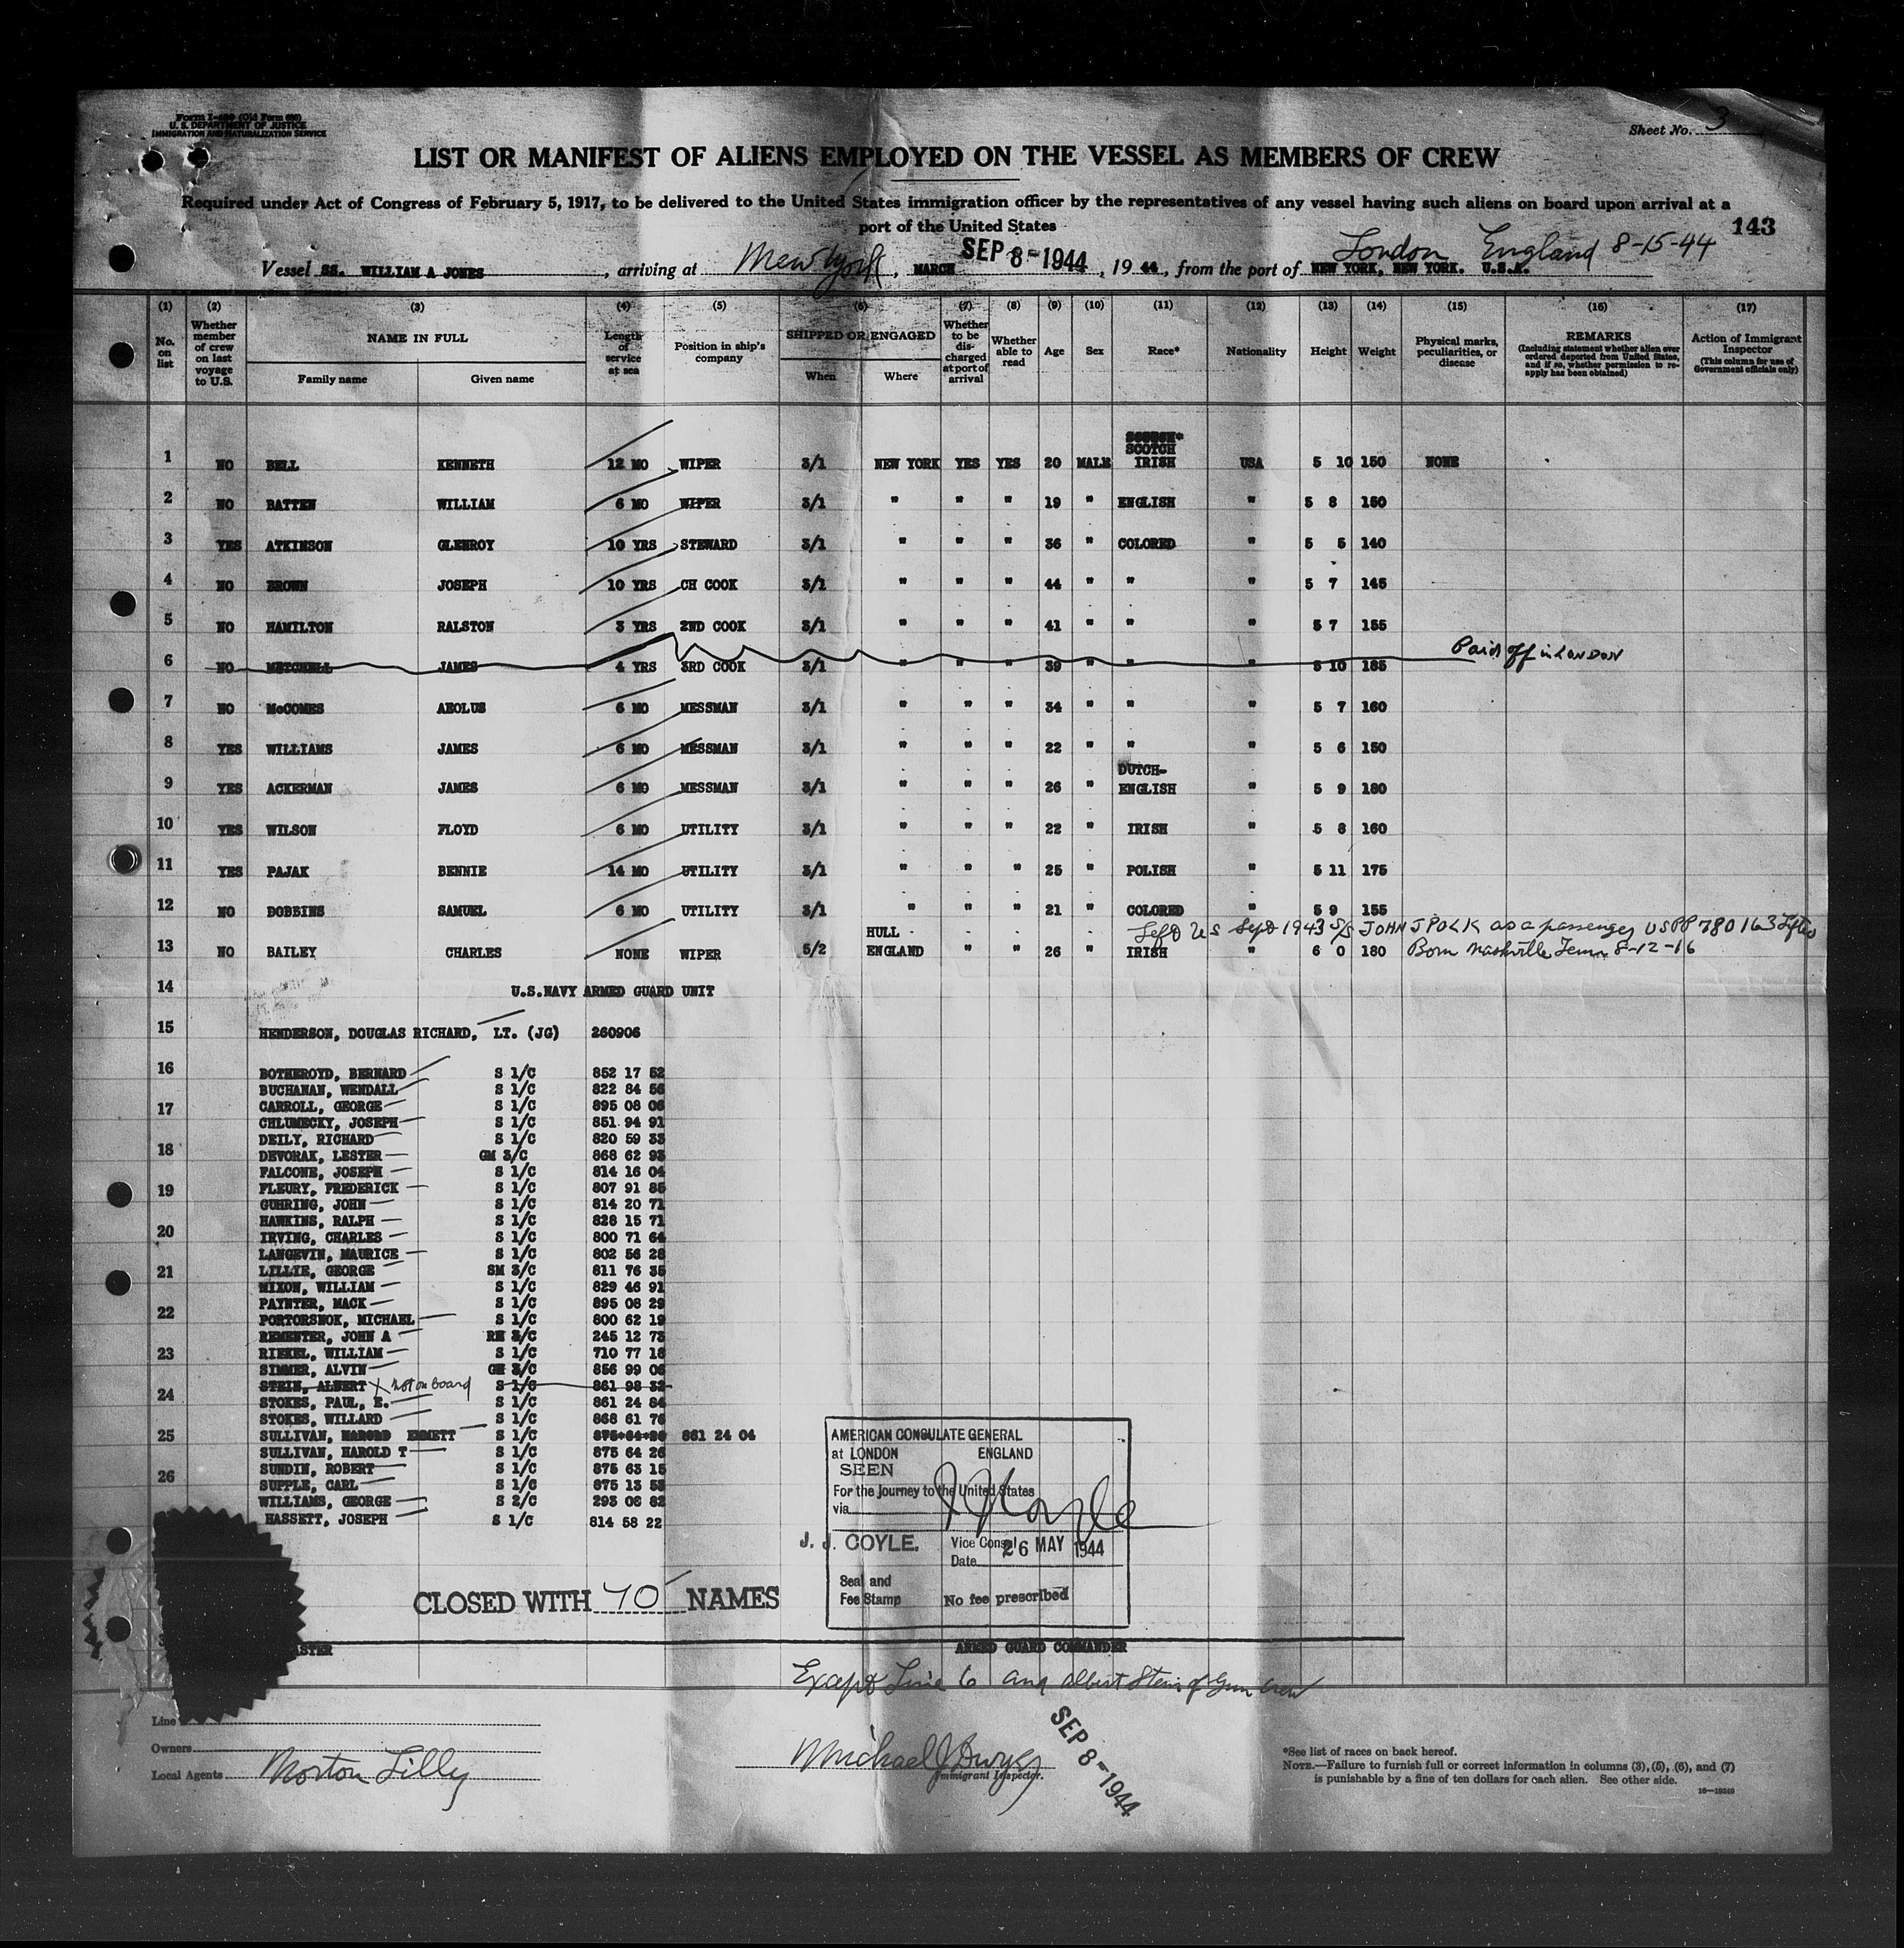 Form I-489 (Old Form 689)
U. S. DEPARTMENT OF JUSTICE
IMMIGRATION AND NATURALIZATION SERVICE
Sheet No. 3
LIST OR MANIFEST OF ALIENS EMPLOYED ON THE VESSEL AS MEMBERS OF CREW
Required under Act of Congress of February 5, 1917, to be delivered to the United States immigration officer by the representatives of any vessel having such aliens on board upon arrival at a
port of the United States
143
Vessel SS. WILLIAM A JONES, arriving at New York, MARCH SEP 8-1944, 19 44, from the port of NEW YORK, NEW YORK. U.S.A. London England 8-15-44
(1) (2) (3) (4) (5) (6) (7) (8) (9) (10) (11) (12) (13) (14) (15) (16) (17)
No. on list
Whether member of crew on last voyage to U.S.
NAME IN FULL
Family name
Given name
Length of service at sea
Position in ship's company
SHIPPED OR ENGAGED
When
Where
Whether to be discharged at port of arrival
Whether able to read
Age
Sex
Race*
Nationality
Height
Weight
Physical marks, peculiarities, or disease
REMARKS
(Including statement whether alien ever ordered deported from United States, and if so, whether permission to reapply has been obtained)
Action of Immigrant Inspector
(This column for use of Government officials only)
SCOTCH
1 NO BELL KENNETH 12 MO WIPER 3/1 NEW YORK YES YES 20 MALE IRISH USA 5 10 150 NONE
2 NO BATTEN WILLIAM 6 MO WIPER 3/1 " " " 19 " ENGLISH " 5 8 150
3 YES ATKINSON GLENROY 10 YRS STEWARD 3/1 " " " 36 " COLORED " 5 5 140
4 NO BROWN JOSEPH 10 YRS CH COOK 3/1 " " " 44 " " " 5 7 145
5 NO HAMILTON RALSTON 3 YRS 2ND COOK 3/1 " " " 41 " " " 5 7 155
6 NO METCHELL JAMES 4 YRS 3RD COOK 3/1 " " " 39 " " " 5 10 185 Paid off in LONDON
7 NO McCOMES AEOLUS 6 MO MESSMAN 3/1 " " " 34 " " " 5 7 160
8 YES WILLIAMS JAMES 6 MO MESSMAN 3/1 " " " 22 " " " 5 6 150
DUTCH-
9 YES ACKERMAN JAMES 6 MO MESSMAN 3/1 " " " 26 " ENGLISH " 5 9 180
10 YES WILSON FLOYD 6 MO UTILITY 3/1 " " " 22 " IRISH " 5 8 160
11 YES PAJAK BENNIE 14 MO UTILITY 3/1 " " " 25 " POLISH " 5 11 175
12 NO DOBBINS SAMUEL 6 MO UTILITY 3/1 " " " 21 " COLORED " 5 9 155
Left US Sept 1943 S/S JOHN J POLK as a passenger USPP 780163 lifted
13 NO BAILEY CHARLES NONE WIPER 5/2 HULL ENGLAND " " 26 " IRISH " 6 0 180 Born Nashville Tenn 8-12-16
14 U.S.NAVY ARMED GUARD UNIT
15 HENDERSON, DOUGLAS RICHARD, LT. (JG) 260906
16 BOTHEROYD, BERNARD S 1/C 852 17 52
BUCHANAN, WENDALL S 1/C 822 84 56
17 CARROLL, GEORGE S 1/C 895 08 06
CHLUMECKY, JOSEPH S 1/C 851 94 91
DEILY, RICHARD S 1/C 820 59 33
18 DEVORAK, LESTER GM 3/C 868 62 93
FALCONE, JOSEPH S 1/C 814 16 04
19 FLEURY, FREDERICK S 1/C 807 91 85
GUHRING, JOHN S 1/C 814 20 71
HAWKINS, RALPH S 1/C 828 15 71
20 IRVING, CHARLES S 1/C 800 71 64
LANGEVIN, MAURICE S 1/C 802 56 28
21 LILLIE, GEORGE SM 3/C 811 76 35
NIXON, WILLIAM S 1/C 829 46 91
PAYNTER, MACK S 1/C 895 08 29
22 PORTORSNOK, MICHAEL S 1/C 800 62 19
REMENTER, JOHN A RM 3/C 245 12 73
23 RIEKEL, WILLIAM S 1/C 710 77 18
SIMMER, ALVIN GM 3/C 856 99 06
24 STEIN, ALBERT X not on board S 1/C 861 98 32
STOKES, PAUL, E. S 1/C 861 24 84
STOKES, WILLARD S 1/C 868 61 76
25 SULLIVAN, HAROLD EMMETT S 1/C 875 64 26 861 24 04
SULLIVAN, HAROLD T S 1/C 875 64 26
SUNDIN, ROBERT S 1/C 875 63 15
26 SUPPLE, CARL S 1/C 875 13 53
WILLIAMS, GEORGE S 2/C 293 06 82
HASSETT, JOSEPH S 1/C 814 58 22
AMERICAN CONSULATE GENERAL
at LONDON ENGLAND
SEEN
For the Journey to the United States
via
J Coyle
J. J. COYLE. Vice Consul
Date 26 MAY 1944
Seal and
Fee Stamp No fee prescribed
CLOSED WITH 70 NAMES
ASTER ARMED GUARD COMMANDER
Except Line 6 and Albert Stein of Gun Crew
Line
Owners
Local Agents Norton Lilly
Michael J Dwyer
Immigrant Inspector.
SEP 8-1944
*See list of races on back hereof.
NOTE.—Failure to furnish full or correct information in columns (3), (5), (6), and (7)
is punishable by a fine of ten dollars for each alien. See other side.
16—19249